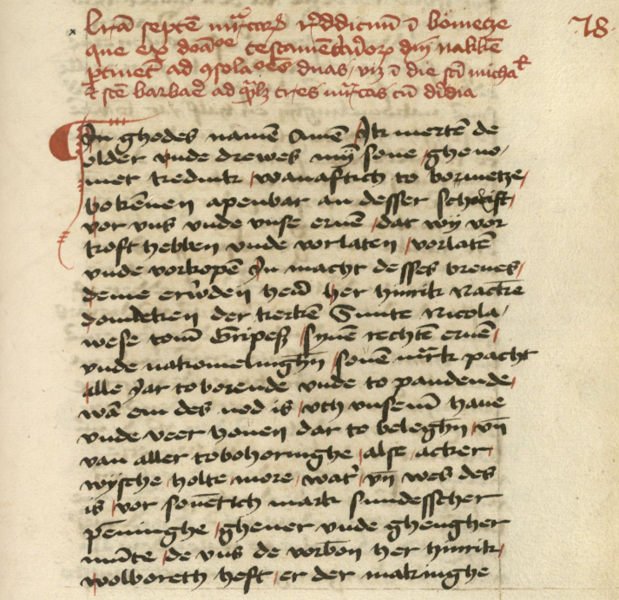 78
Lr̄am septē mr̄caꝝ redditmū ī Bōmetze
que ex doāōe testamētarioꝝ dn̄i nakkē
ꝑtinet ad ꝯsolaōes duas viꝫ ī die sc̄i micha
⁊ sc̄e barbaꝛe ad q̄lꝫ tres mr̄cas cū dīdia
In ghodes namē Amē Ik mertē de
older vnde drewes mȳ sone gheno
met tredink wanaftich to bometze
bokēnen apenbar an desser schrift
vor vns vnde vnse eruē dat wy vor
koft hebben vnde vorlaten vorlatē
vnde vorkopē yn macht desses breues
deme erw̄den hēn her hinrik nackē
domdeken der kerken Sunte Nicola
wese tom̄ Gripeß synēn rechtē eruē
vnde nakomelinghē souēn m̄rk pacht
alle yar to borende vnde to pandende
wā em des nod is vth vnsem̄ haue
vnde veer houen dar to beleghē vn̄
van aller tobehoringhe alse acker
wysche holte more wat̄ vn̄ wes des
is vor souētich mark sundesscher
pēninghe gheuer vnde ghengher
mūte de vns de vorbēn her hinrik
wolboreth heft er der makinghe